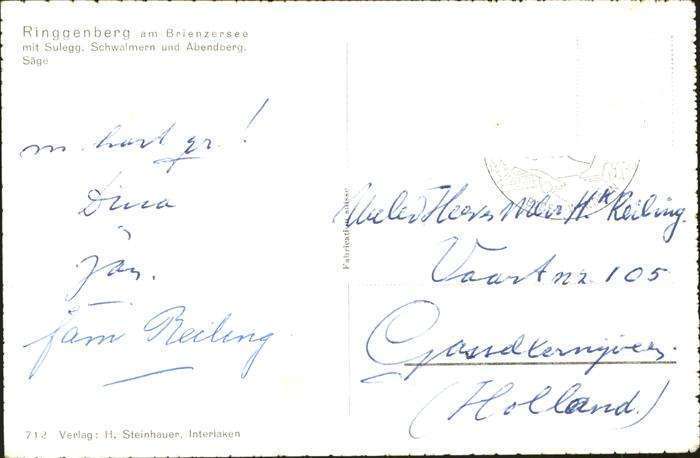 Ringgenberg am Brienzersee
mit Sulegg, Schwalmern und Abendberg.
Säge
m. hart. gr. !
Dina
Jan.
fam Reiling
Fabrication suisse
WelEd Heer en Mevr Reiling.
Vaart nz. 105
(Holland.)
712 Verlag: H. Steinhauer, Interlaken